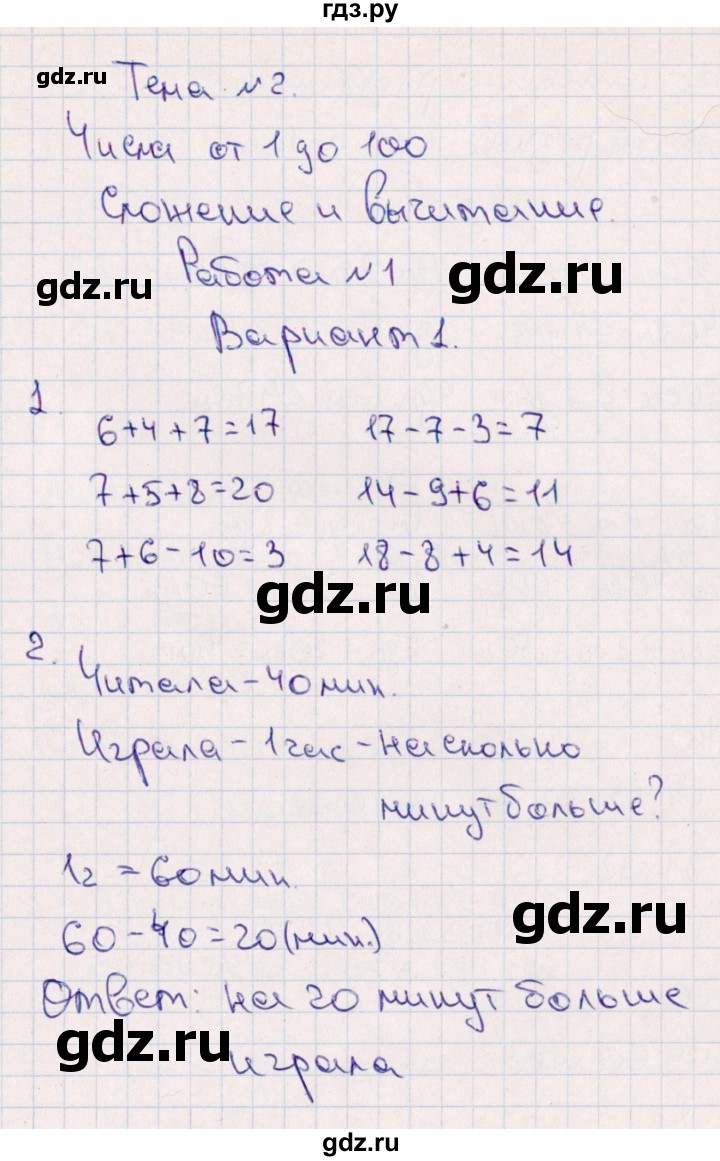 гдз.ру
gdz.ru
Тема №2.
Числа от 1 до 100
Сложение и вычитание.
Работа №1
gdz.ru
gdz.ru
Вариант 1.
1.
6+4+7=17 17-7-3=7
7+5+8=20 14-9+6=11
7+6-10=3 18-8+4=14
gdz.ru
2.
Читала - 40 мин.
Играла - 1 час - на сколько
минут больше?
1ч = 60 мин.
gdz.ru
60-40=20(мин.)
Ответ: на 20 минут больше
gdz.ru
играла
gdz.ru